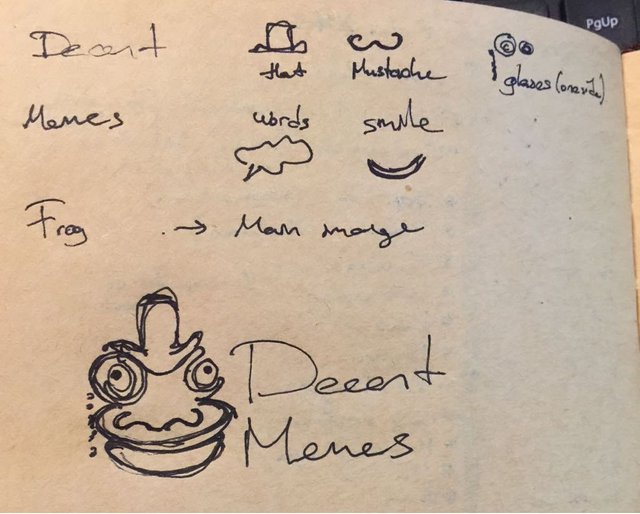 Decent
Hat Mustache
glases (one side)
Memes words smile
Frog → Main image
Decent
Memes
PgUp